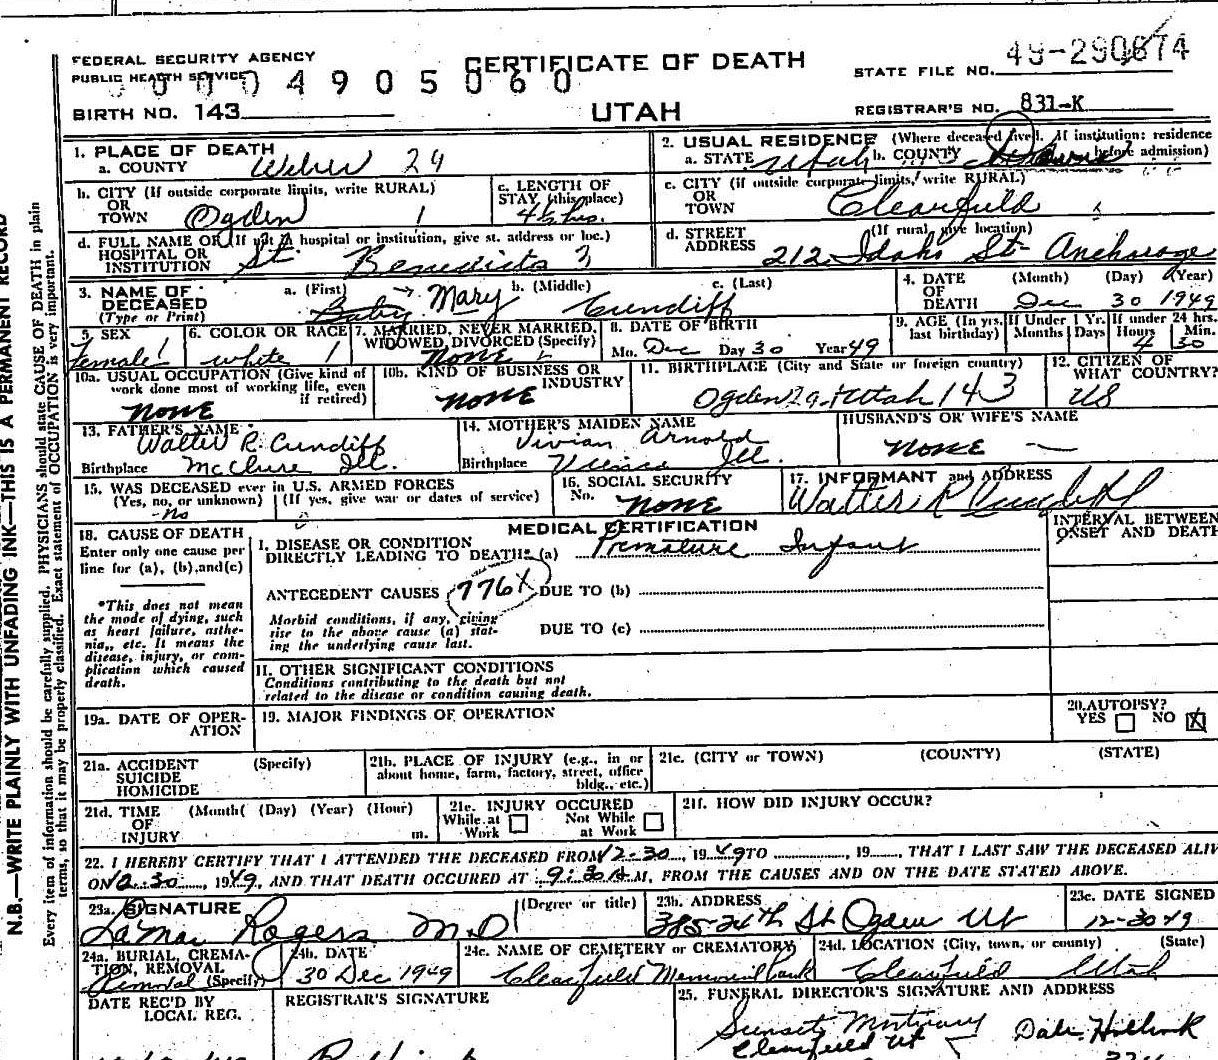 FEDERAL SECURITY AGENCY
PUBLIC HEALTH SERVICE
0004905060
CERTIFICATE OF DEATH
STATE FILE NO. 49-290674
BIRTH NO. 143
UTAH
REGISTRAR'S NO. 831-K
1. PLACE OF DEATH
a. COUNTY Weber 29
2. USUAL RESIDENCE (Where deceased lived. If institution: residence before admission)
a. STATE Utah b. COUNTY
b. CITY (If outside corporate limits, write RURAL)
OR
TOWN Ogden 1
c. LENGTH OF
STAY (this place)
4½ hrs.
c. CITY (If outside corporate limits, write RURAL)
OR
TOWN Clearfield
d. FULL NAME OF (If not in hospital or institution, give st. address or loc.)
HOSPITAL OR
INSTITUTION St. Benedicts 3
d. STREET
ADDRESS
(If rural, give location)
212 Idaho St- Anchorage
3. NAME OF
DECEASED
(Type or Print)
a. (First) b. (Middle) c. (Last)
Baby → Mary Cundiff
4. DATE
OF
DEATH
(Month) (Day) (Year)
Dec 30 1949
5. SEX
Female 1
6. COLOR OR RACE
white 1
7. MARRIED, NEVER MARRIED,
WIDOWED, DIVORCED (Specify)
None
8. DATE OF BIRTH
Mo. Dec Day 30 Year 49
9. AGE (In yrs. last birthday)
If Under 1 Yr.
Months Days
If under 24 hrs.
Hours Min.
4 30
10a. USUAL OCCUPATION (Give kind of
work done most of working life, even
if retired)
None
10b. KIND OF BUSINESS OR
INDUSTRY
None
11. BIRTHPLACE (City and State or foreign country)
Ogden 29. Utah 143
12. CITIZEN OF
WHAT COUNTRY?
US
13. FATHER'S NAME
Walter R. Cundiff
Birthplace McClure Ill.
14. MOTHER'S MAIDEN NAME
Vivian Arnold
Birthplace Ill.
HUSBAND'S OR WIFE'S NAME
None —
15. WAS DECEASED ever in U.S. ARMED FORCES
(Yes, no, or unknown) (If yes, give war or dates of service)
-No
16. SOCIAL SECURITY
No. None
17. INFORMANT and ADDRESS
Walter R Cundiff
18. CAUSE OF DEATH
Enter only one cause per
line for (a), (b), and (c)
*This does not mean
the mode of dying, such
as heart failure, asthe-
nia, etc. It means the
disease, injury, or com-
plication which caused
death.
MEDICAL CERTIFICATION
INTERVAL BETWEEN
ONSET AND DEATH
I. DISEASE OR CONDITION
DIRECTLY LEADING TO DEATH* (a) Premature Infant
ANTECEDENT CAUSES 776X DUE TO (b)
Morbid conditions, if any, giving
rise to the above cause (a) stat-
ing the underlying cause last.
DUE TO (c)
II. OTHER SIGNIFICANT CONDITIONS
Conditions contributing to the death but not
related to the disease or condition causing death.
19a. DATE OF OPER-
ATION
19. MAJOR FINDINGS OF OPERATION
20. AUTOPSY?
YES NO X
21a. ACCIDENT
SUICIDE
HOMICIDE
(Specify)
21b. PLACE OF INJURY (e.g., in or
about home, farm, factory, street, office
bldg., etc.)
21c. (CITY or TOWN) (COUNTY) (STATE)
21d. TIME
OF
INJURY
(Month( (Day) (Year) (Hour)
m.
21e. INJURY OCCURED
While at
Work
Not While
at Work
21f. HOW DID INJURY OCCUR?
22. I HEREBY CERTIFY THAT I ATTENDED THE DECEASED FROM 12-30, 1949 TO ..., 19..., THAT I LAST SAW THE DECEASED ALIV
ON 12-30, 1949, AND THAT DEATH OCCURED AT 9:30 A M, FROM THE CAUSES AND ON THE DATE STATED ABOVE.
23a. SIGNATURE (Degree or title)
LaMar Rogers M.D
23b. ADDRESS
385-24th St Ogden Ut
23c. DATE SIGNED
12-30 49
24a. BURIAL, CREMA-
TION, REMOVAL
Removal (Specify)
24b. DATE
30 Dec 1949
24c. NAME OF CEMETERY or CREMATORY
Clearfield Memorial Park
24d. LOCATION (City, town, or county) (State)
Clearfield Utah
DATE REC'D BY
LOCAL REG.
REGISTRAR'S SIGNATURE
25. FUNERAL DIRECTOR'S SIGNATURE AND ADDRESS
Sunset Mortuary
Clearfield Ut
N.B.—WRITE PLAINLY WITH UNFADING INK—THIS IS A PERMANENT RECORD
Every item of information should be carefully supplied. PHYSICIANS should state CAUSE OF DEATH in plain
terms, so that it may be properly classified. Exact statement of OCCUPATION is very important.